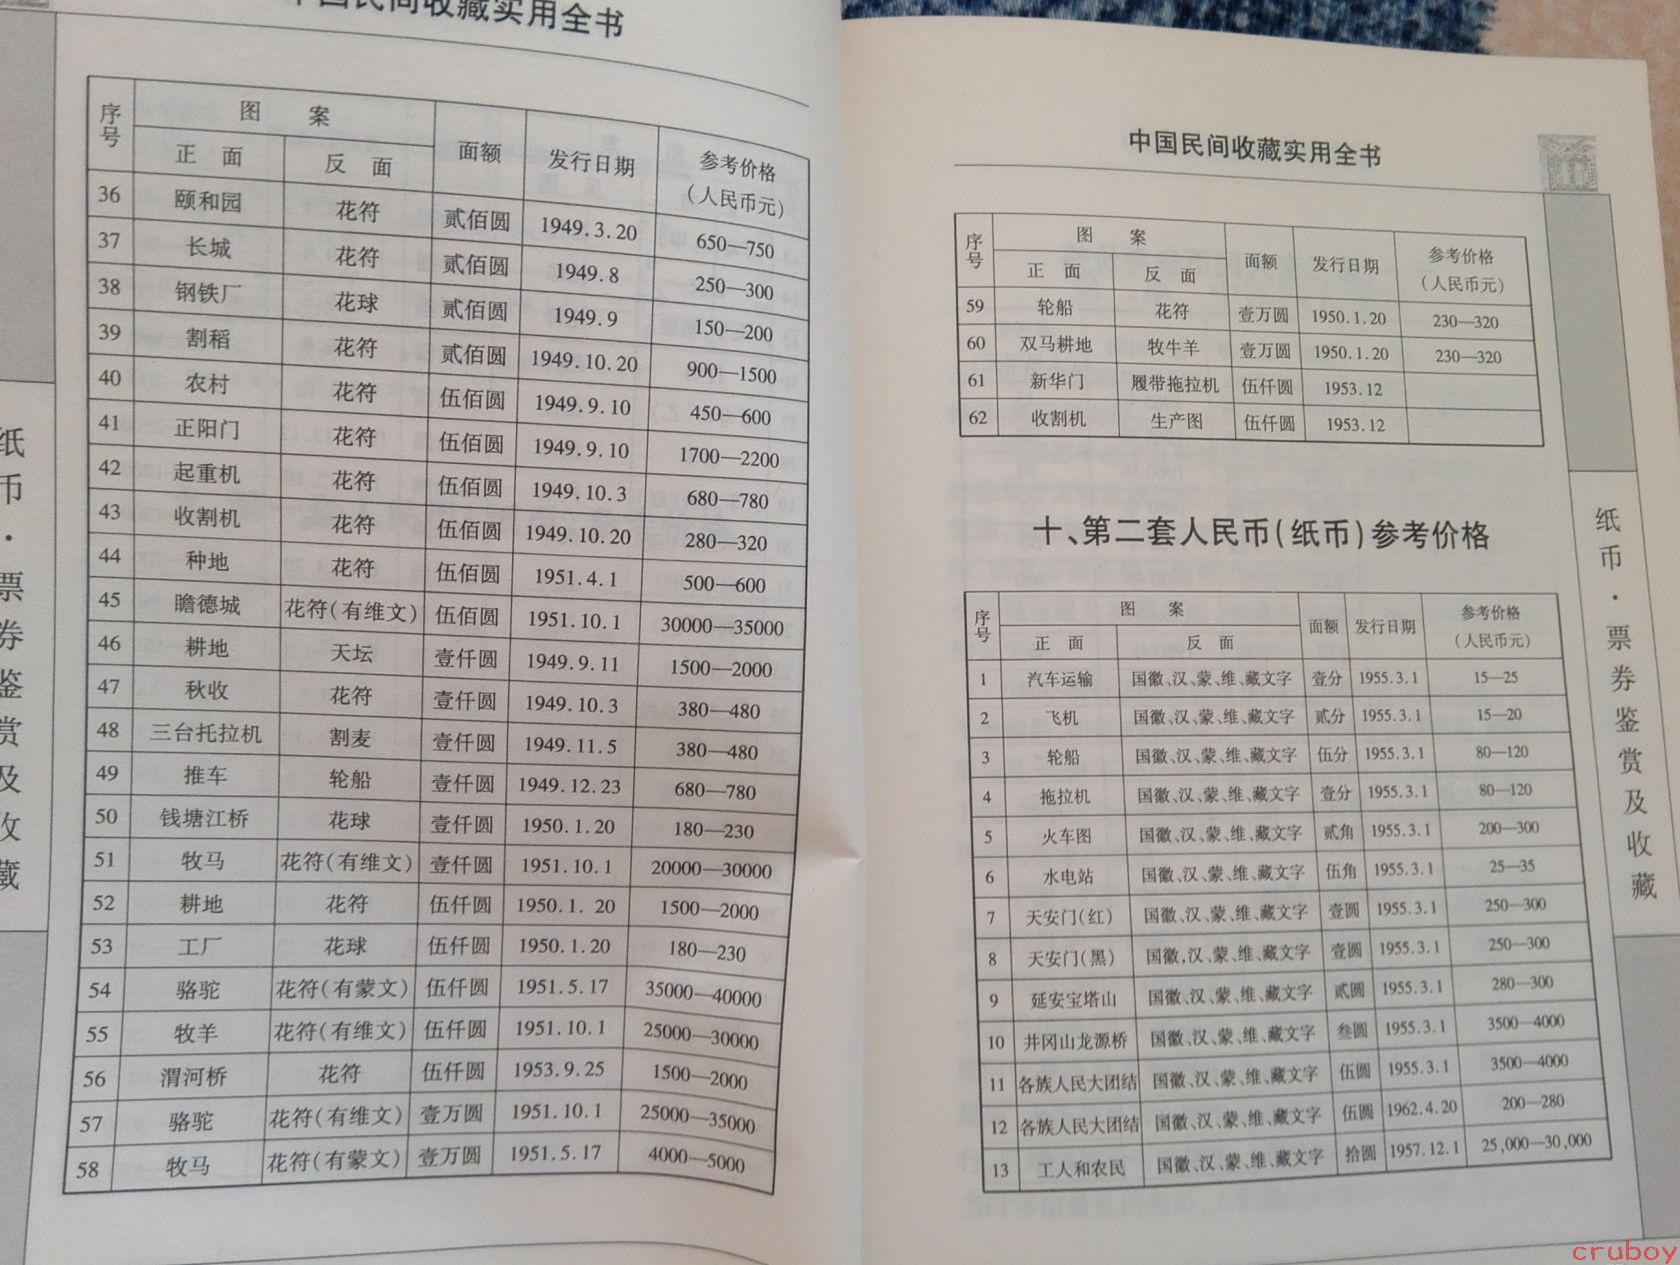 中国民间收藏实用全书
序号 图 案 面额 发行日期 参考价格(人民币元)
正 面 反 面
36 颐和园 花符 贰佰圆 1949.3.20 650—750
37 长城 花符 贰佰圆 1949.8 250—300
38 钢铁厂 花球 贰佰圆 1949.9 150—200
39 割稻 花符 贰佰圆 1949.10.20 900—1500
40 农村 花符 伍佰圆 1949.9.10 450—600
41 正阳门 花符 伍佰圆 1949.9.10 1700—2200
42 起重机 花符 伍佰圆 1949.10.3 680—780
43 收割机 花符 伍佰圆 1949.10.20 280—320
44 种地 花符 伍佰圆 1951.4.1 500—600
45 瞻德城 花符(有维文) 伍佰圆 1951.10.1 30000—35000
46 耕地 天坛 壹仟圆 1949.9.11 1500—2000
47 秋收 花符 壹仟圆 1949.10.3 380—480
48 三台托拉机 割麦 壹仟圆 1949.11.5 380—480
49 推车 轮船 壹仟圆 1949.12.23 680—780
50 钱塘江桥 花球 壹仟圆 1950.1.20 180—230
51 牧马 花符(有维文) 壹仟圆 1951.10.1 20000—30000
52 耕地 花符 伍仟圆 1950.1. 20 1500—2000
53 工厂 花球 伍仟圆 1950.1.20 180—230
54 骆驼 花符(有蒙文) 伍仟圆 1951.5.17 35000—40000
55 牧羊 花符(有维文) 伍仟圆 1951.10.1 25000—30000
56 渭河桥 花符 伍仟圆 1953.9.25 1500—2000
57 骆驼 花符(有维文) 壹万圆 1951.10.1 25000—35000
58 牧马 花符(有蒙文) 壹万圆 1951.5.17 4000—5000
纸币·票券鉴赏及收藏
中国民间收藏实用全书
序号 图 案 面额 发行日期 参考价格(人民币元)
正 面 反 面
59 轮船 花符 壹万圆 1950.1.20 230—320
60 双马耕地 牧牛羊 壹万圆 1950.1.20 230—320
61 新华门 履带拖拉机 伍仟圆 1953.12
62 收割机 生产图 伍仟圆 1953.12
十、第二套人民币(纸币)参考价格
序号 图 案 面额 发行日期 参考价格(人民币元)
正 面 反 面
1 汽车运输 国徽、汉、蒙、维、藏文字 壹分 1955.3.1 15—25
2 飞机 国徽、汉、蒙、维、藏文字 贰分 1955.3.1 15—20
3 轮船 国徽、汉、蒙、维、藏文字 伍分 1955.3.1 80—120
4 拖拉机 国徽、汉、蒙、维、藏文字 壹分 1955.3.1 80—120
5 火车图 国徽、汉、蒙、维、藏文字 贰角 1955.3.1 200—300
6 水电站 国徽、汉、蒙、维、藏文字 伍角 1955.3.1 25—35
7 天安门(红) 国徽、汉、蒙、维、藏文字 壹圆 1955.3.1 250—300
8 天安门(黑) 国徽,汉、蒙、维、藏文字 壹圆 1955.3.1 250—300
9 延安宝塔山 国徽、汉、蒙、维、藏文字 贰圆 1955.3.1 280—300
10 井冈山龙源桥 国徽、汉、蒙、维、藏文字 叁圆 1955.3.1 3500—4000
11 各族人民大团结 国徽、汉、蒙、维、藏文字 伍圆 1955.3.1 3500—4000
12 各族人民大团结 国徽、汉、蒙、维、藏文字 伍圆 1962.4.20 200—280
13 工人和农民 国徽、汉、蒙、维、藏文字 拾圆 1957.12.1 25,000—30,000
纸币·票券鉴赏及收藏
cruboy